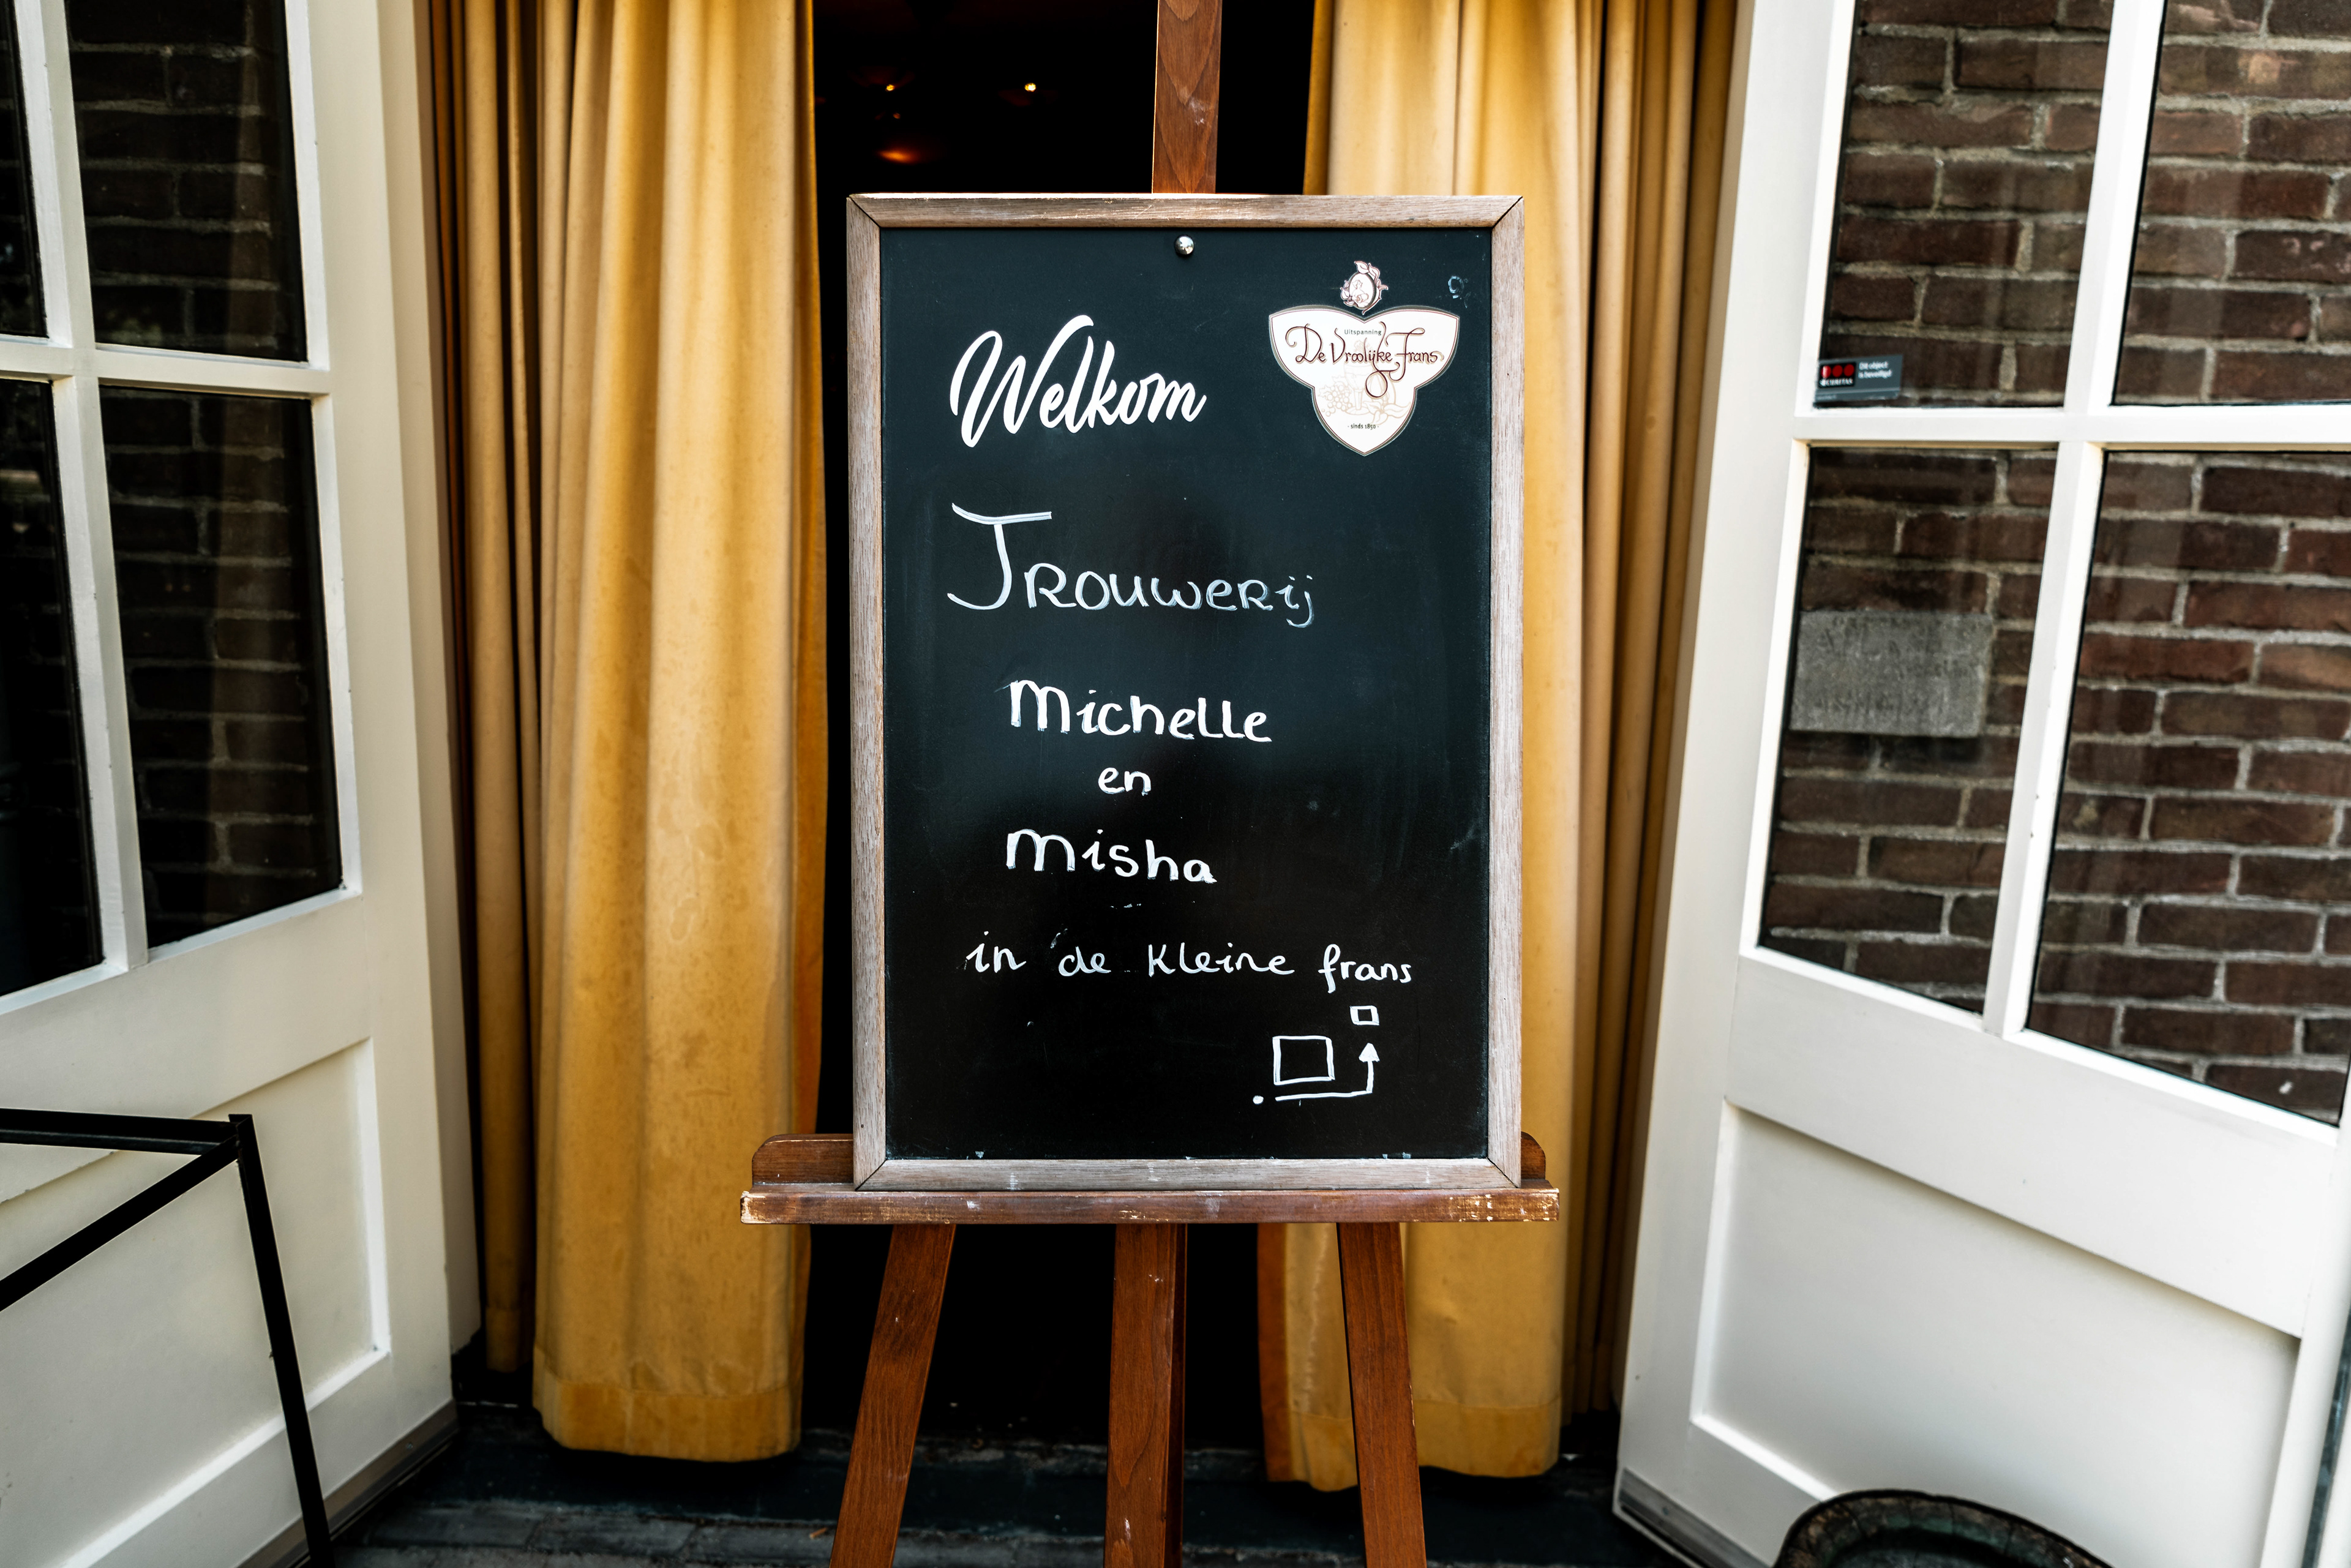 Welkom
Uitspanning
De Vroolijke Frans
- sinds 1850 -
Trouwerij
Michelle
en
Misha
in de kleine frans
Dit object
is beveiligd